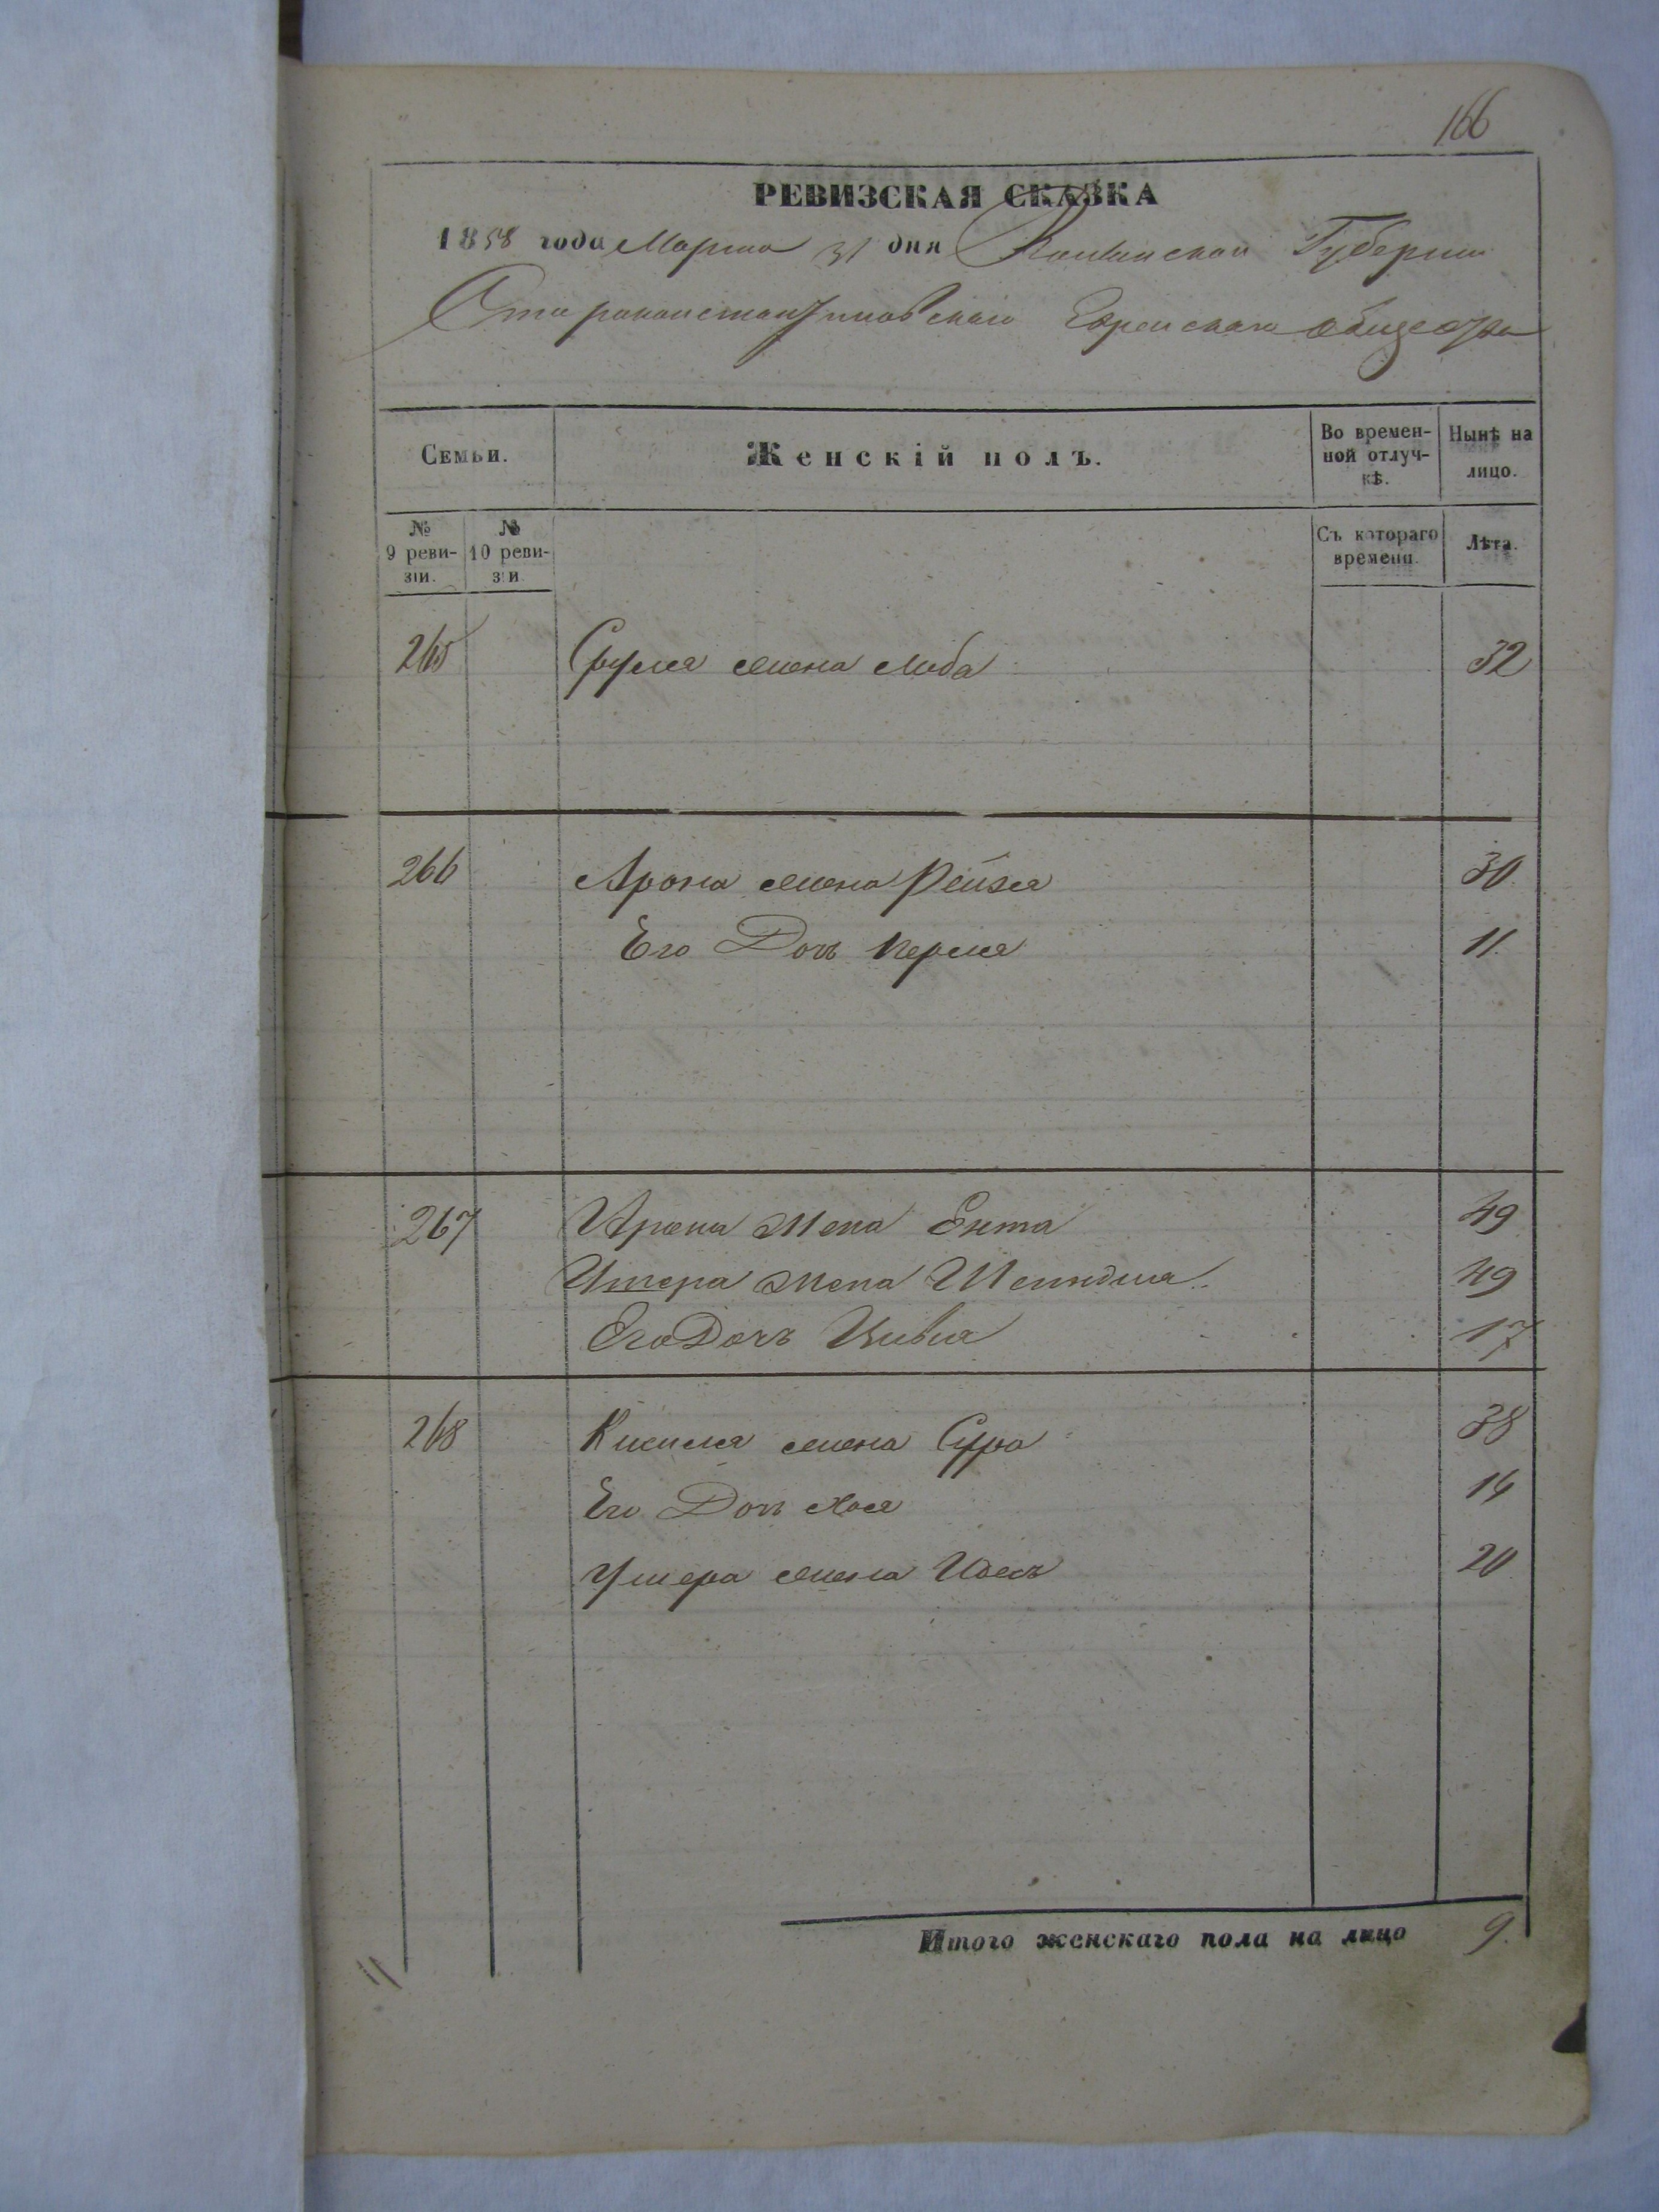 166
РЕВИЗСКАЯ СКАЗКА
1858 года Марта 31 дня Волынской Губернии
Староконстантиновскаго Еврейскаго общества
Семьи.
Женскій полъ.
Во времен-
ной отлуч-
кѣ.
Нынѣ на
лицо.
№
9 реви-
зіи.
№
10 реви-
зіи
Съ котораго
времени.
Лѣта.
265 Сруля жена Люба 32
266 Арона жена Рейзя 30
Его Дочь Перля 11
267 Арона жена Ента 49
жена 49
Его Дочь Цивья 17
268 Кисиля жена Сура 38
Его Дочь Хася 14
Ушера жена Идесъ 20
Итого женскаго пола на лицо 9.